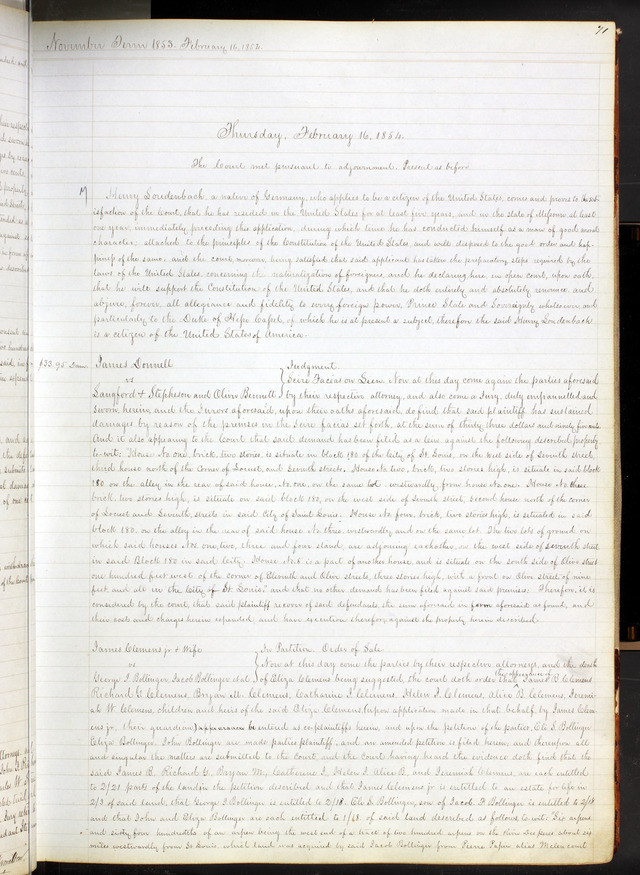 71
November Term 1853. February 16, 1854.
Thursday, February 16, 1854.
The Court met pursuant to adjournment. Present as before
Henry Loudenback, a native of Germany, who applies to be a citizen of the United States, comes and proves to the sat-
isfaction of the Court, that he has resided in the United States for at least five years, and in the state of Missouri at least
one year, immediately preceding this application, during which time he has conducted himself as a man of good moral
character; attached to the principles of the Constitution of the United States, and well disposed to the good order and hap-
piness of the same. and the court, moreover being satisfied that said applicant has taken the preparatory steps required by the
laws of the United States, concerning the naturalization of foreigners, and he declaring here, in open court, upon oath,
that he will support the Constitution of the United States, and that he doth entirely and absolutely renounce and
abjure, forever, all allegiance and fidelity to every foreign power, Prince State and Sovereignty whatsoever and
particularly to the Duke of Hesse Cassel, of which he is at present a subject, therefore the said Henry Loudenback
is a citizen of the United States of America.
$33.95 Dam
James Donnell } Judgment
vs } Scire Facias on Lien. Now at this day come again the parties aforesaid
Langford & Stepheson and Oliver Bennett } by their respective attorneys, and also come a Jury, duly empannelled and
sworn herein, and the Jurors aforesaid, upon their oaths aforesaid, do find, that said plaintiff has sustained
damages by reason of the premises in the Scire facias set forth, at the sum of thirty three dollars and ninety five cents.
And it also appearing to the Court that said demand has been filed as a lien against the following described property
to wit: House No one, brick, two stories, is situate in block 180 of the City of St. Louis, on the west side of Seventh street,
third house north of the Corner of Locust and Seventh streets. House No two, brick, two stories high, is situate in said block
180 on the alley, in the rear of said house, No. one, on the same lot westwardly, from house No one. House No three
brick, two stories high, is situate on said block 180, on the west side of Seventh street, Second house north of the corner
of Locust and Seventh streets in said City of Saint Louis. House No four, brick, two stories high, is situated in said
block 180, on the alley in the rear of said house No three, westwardly and on the same lot. The two lots of ground on
which said houses Nos one, two, three and four stand, are adjoining eachother, on the west side of seventh street
in said Block 180 in said City. House No 5 is a part of another house, and is situate on the south side of Olive street
one hundred feet west of the corner of Eleventh and Olive streets, three stories high, with a front on Olive street of nine
feet and all in the City of St Louis, and that no other demand has been filed against said premises: Therefore, it is
considered by the court, that said plaintiff recover of said defendants the sum aforesaid in form aforesaid as found, and
their costs and charges herein expended and have execution therefor, against the property herein described.
James Clemens jr & Wife } In Partition Order of Sale
vs } Now at this day come the parties by their respective attorneys, and the death
George I Bollinger, Jacob Bollinger et al } of Eliza Clemens being suggested, the court doth order the appearance of that James B. Clemens
Richard G Clemens, Bryan M. Clemens, Catharine I Clemens, Helen I. Clemens, Alice B. Clemens, Jerem-
iah W Clemens, children and heirs of the said Eliza Clemens (upon application made in that behalf by James Clem-
ens jr. their guardian) appearance be entered as co-plaintiffs herein, and upon the petition of the parties, Eli S. Bollinger
Eliza Bollinger, John Bollinger are made parties plaintiff, and an amended petition is filed herein, and thereupon all
and singular the matters are submitted to the court, and the court having heard the evidence doth find that the
said James B. Richard G, Bryan M, Catharine I, Helen I Alice B. and Jeremiah Clemens, are each entitled
to 2/21 parts of the land in the petition described and that James Clemens jr is entitled to an estate for life in
2/3 of said land, that George I Bollinger is entitled to 2/18. Eli S. Bollinger, son of Jacob F Bollinger is entitled to 2/18
and that John and Eliza Bollinger are each entitled to 1/18 of said land described as follows to wit: Six arpens
and sixty four hundredths of an arpen being the west end of a tract of two hundred arpens on the River Des peres about six
miles westwardly from St Louis, which land was acquired by said Jacob Bollinger from Pierre Papin alias Melancourt